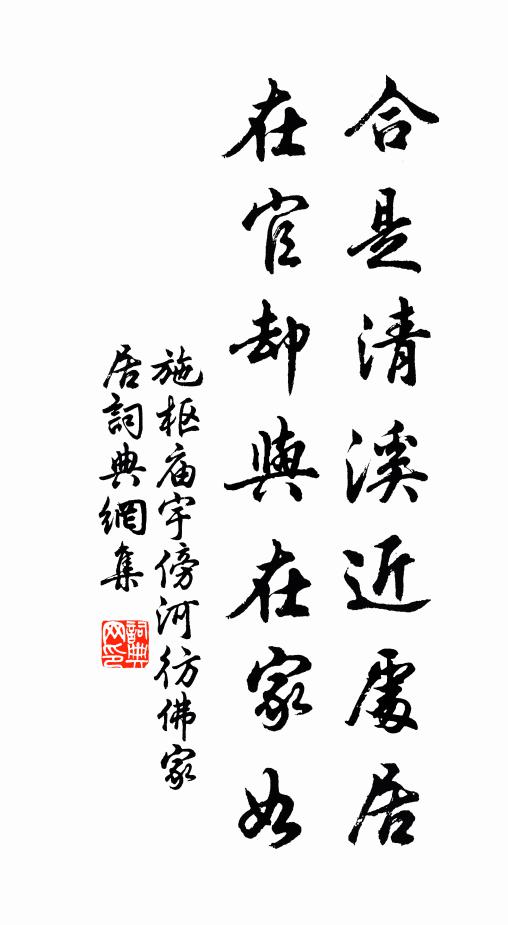 合是清溪近處居
在官却與在家如
施枢庙宇傍河彷佛家
居詞典網集
詞典网印